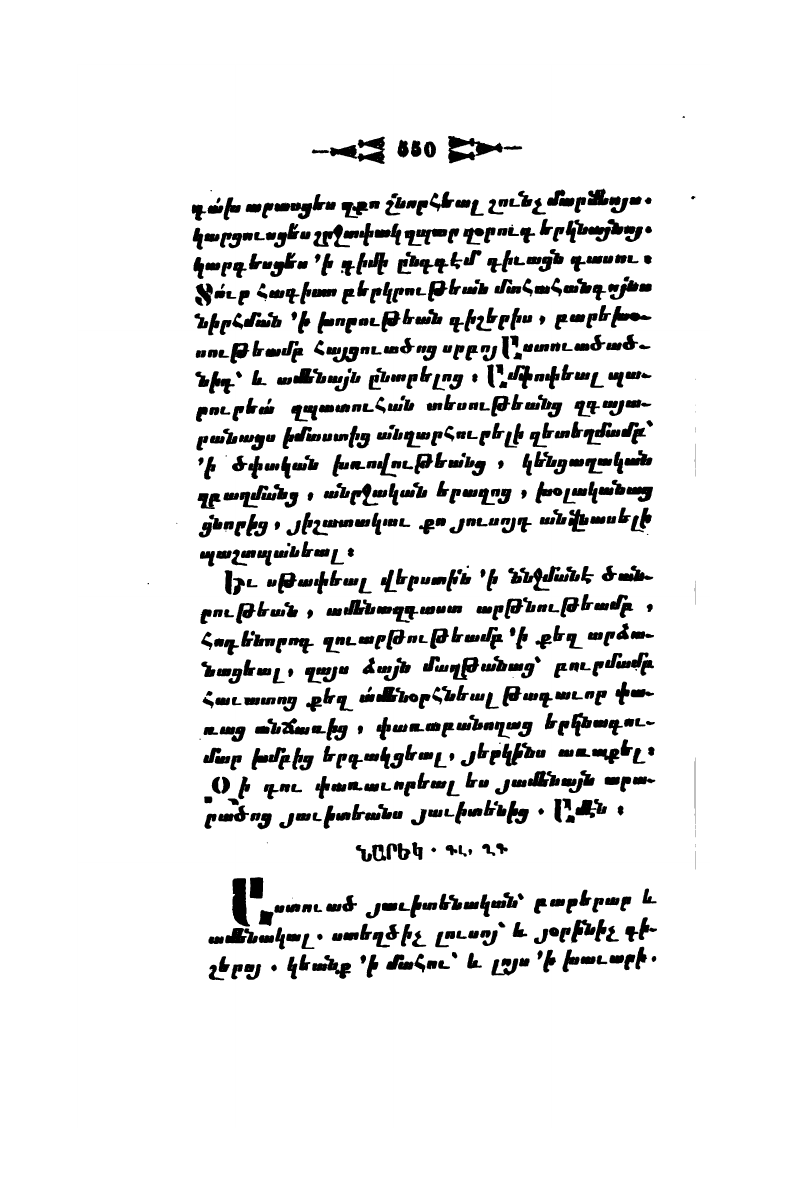 550
գահ արասցես զքո շնորհեալ շունչ մարմնոյս.
կարցուսցես շրջափակ զպար զօրուգ երկնայնոյ.
կարգեսցես ՚ի դիմի ընդդէմ դիւացն դասու :
Տուր հանգիստ բերկրութեան մահահանգոյնս
նիրհման ՚ի խորութեան գիշերիս, բարեխօ-
սութեամբ հայցուածոց սրբոյ Աստուածած-
նիդ՝ և ամենայն ընտրելոց : Ամփոփեալ պա-
րուրեա զպատուհան տեսութեանց զգայա-
րանացս իմաստից անզարհուրելի զետեղմամբ՝
՚ի ծփական խռովութեանց, կենցաղական
զբաղմանց, անրջական երազոց, խօլականաց
ցնորից, յիշատակաւ քո յուսոյդ անվնասելի
պաշտպանեալ :
Եւ սթափեալ վերստին ՚ի ննջմանէ ծան-
րութեան, ամենազգաստ արթնութեամբ,
հոգենորոգ զուարթութեամբ ՚ի քեզ արձա-
նացեալ, զայս ձայն մաղթանաց՝ բուրմամբ
հաւատոց քեզ ամենօրհնեալ թագաւոր փա-
ռաց անճառից, փառաբանողաց երկնագու-
մար խմբից երգակցեալ, յերկինս առաքել :
Զի դու փառաւորեալ ես յամենայն արա-
րածոց յաւիտեանս յաւիտենից. Ամէն :
ՆԱՐԵԿ. ԳԼ. ՂԳ
Աստուած յաւիտենական՝ բարերար և
ամենակալ. ստեղծիչ լուսոյ՝ և յօրինիչ գի-
շերոյ. կեանք ՚ի մահու՝ և լոյս ՚ի խաւարի.